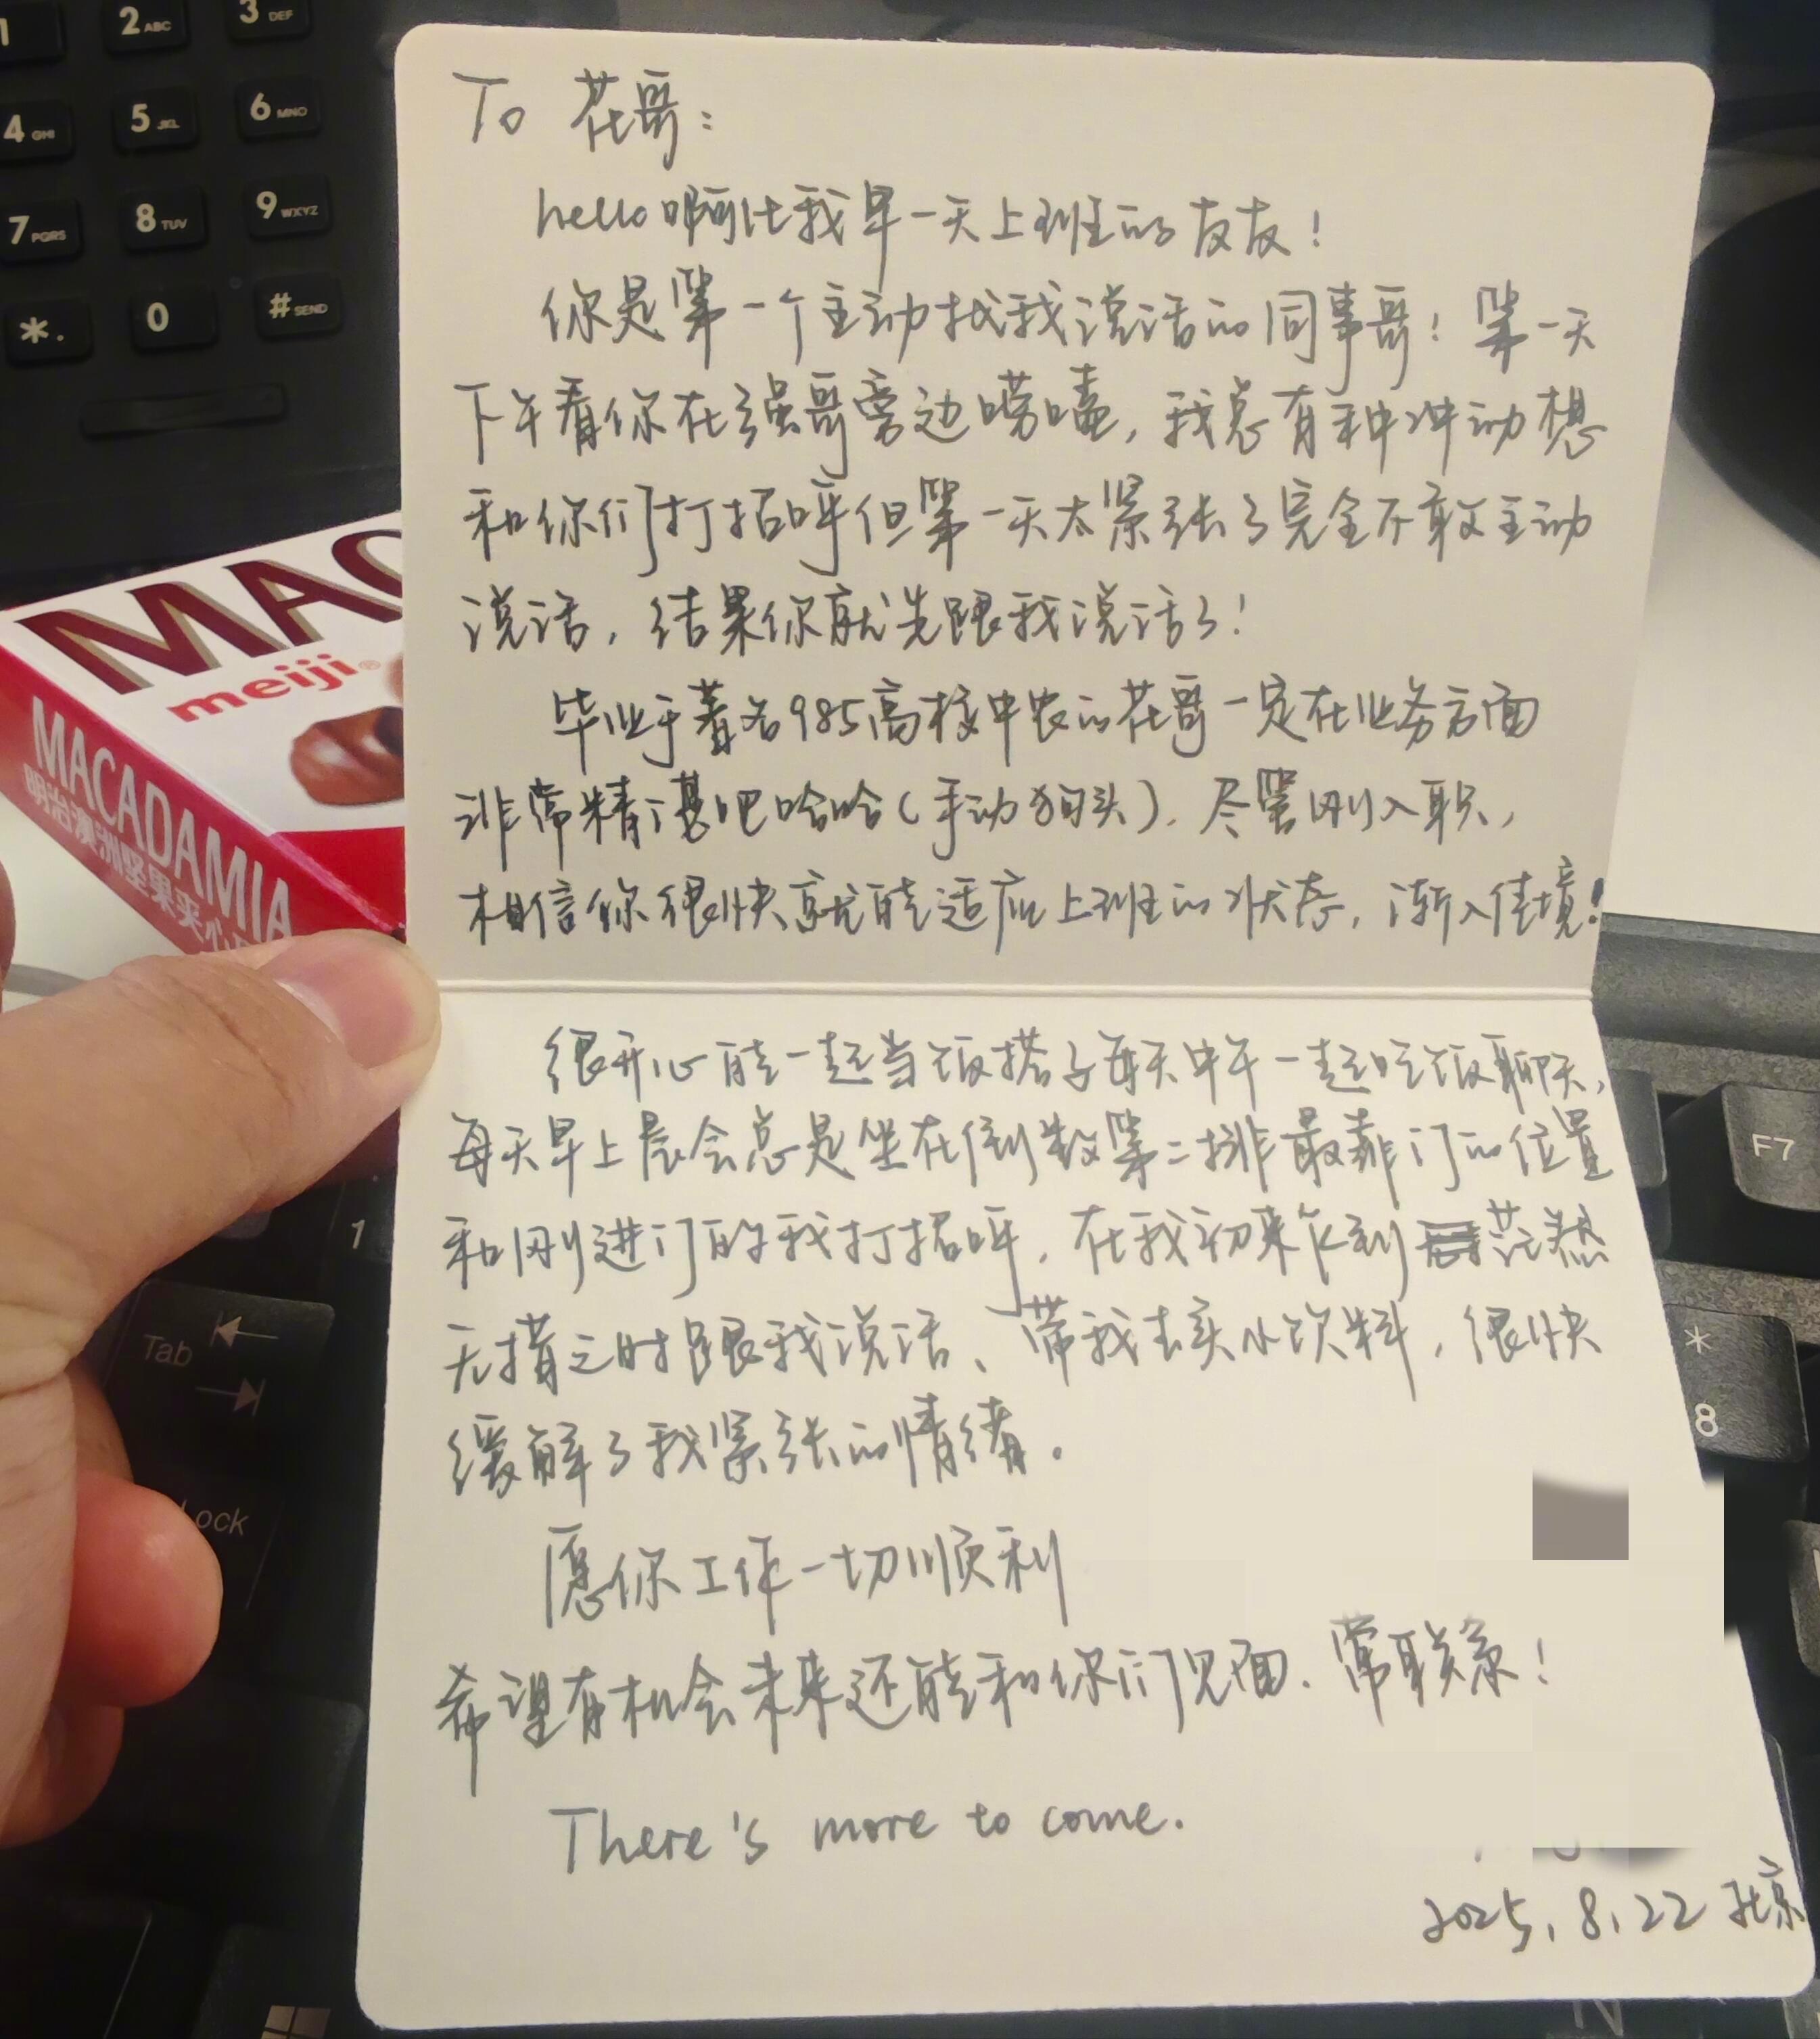 1
2 ABC
3 DEF
4 GHI
5 JKL
6 MNO
7 PQRS
8 TUV
9 WXYZ
*.
0
# SEND
MAC
meiji
MACADAMIA
明治澳洲坚果夹心
To 花哥：
hello啊比我早一天上班的友友！
你是第一个主动找我说话的同事哥！第一天
下午看你在强哥旁边唠嗑，我总有种冲动想
和你们打招呼但第一天太紧张了完全不敢主动
说话，结果你就先跟我说话了！
毕业于著名985高校中农的花哥一定在业务方面
非常精湛吧哈哈（手动狗头）.尽管刚入职，
相信你很快就能适应上班的状态，渐入佳境！
很开心能一起当饭搭子每天中午一起吃饭聊天，
每天早上晨会总是坐在倒数第二排最靠门的位置
和刚进门的我打招呼，在我初来乍到茫然
无措之时跟我说话、带我去买小饮料，很快
缓解了我紧张的情绪。
愿你工作一切顺利
希望有机会未来还能和你们见面.常联系！
There's more to come.
2025.8.22 北京
F7
1
Tab
*
8
Lock
N